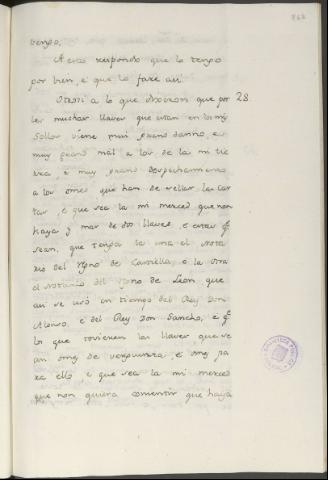 tiempo.
A esto respondo que lo tengo
por bien, é que lo fare asi
Otrosi a lo que dixeron que por 28
las muchas llaves que estan en los mis
Sellos viene mui grand danno, e
muy grand mal a los de la mi tie
rra, e muy grand despechamiento
a los omes que han de sellar las car
tas, e que sea la mi merced que non
haya y mas de dos llaves, e estas q̃
sean, que tenga la una el Nota
rio del Regno de Castiella, e la otra
el Notario del Regno de Leon, que
asi se usó en tiempo del Rey Don
Alonso, e del Rey Don Sancho, e q̃
los que tovieren las llaves que se
an omes de verguenza, e omes pa
ra ello, e que sea la mi merced
que non quiera consentir que haya